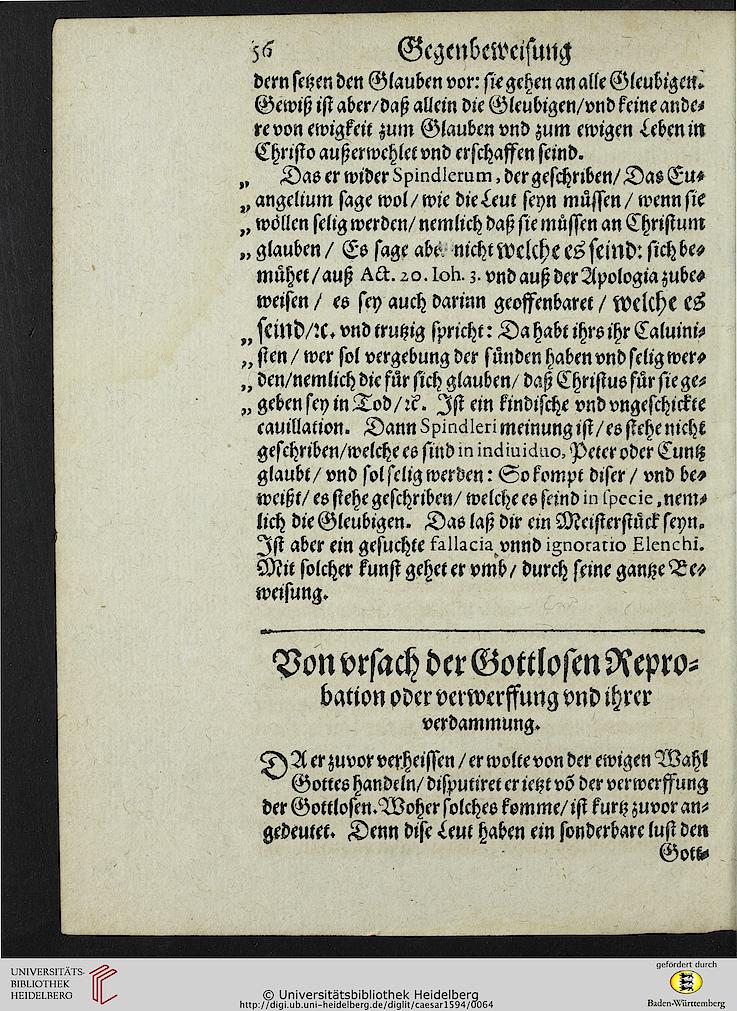 56 Gegenbeweisung
dern setzen den Glauben vor: sie gehen an alle Gleubigen.
Gewiß ist aber/daß allein die Gleubigen/vnd keine ande⸗
re von ewigkeit zum Glauben vnd zum ewigen Leben in
Christo außerwehlet vnd erschaffen seind.
„ Das er wider Spindlerum, der geschriben/ Das Eu⸗
„ angelium sage wol/ wie die Leut seyn müssen / wenn sie
„ wöllen selig werden/ nemlich daß sie müssen an Christum
„ glauben / Es sage abe nicht welche es seind: sich be⸗
mühet/auß Act. 20. Ioh. 3. vnd auß der Apologia zube⸗
weisen / es sey auch darinn geoffenbaret / welche es
„ seind/ꝛc. vnd trutzig spricht: Da habt ihrs ihr Caluini⸗
„ sten / wer sol vergebung der sünden haben vnd selig wer⸗
„ den/nemlich die für sich glauben/ daß Christus für sie ge⸗
„ geben sey in Tod/ꝛc. Ist ein kindische vnd vngeschickte
cauillation. Dann Spindleri meinung ist/es stehe nicht
geschriben/welche es sind in indiuiduo, Peter oder Cuntz
glaubt/ vnd sol selig werden: So kompt diser / vnd be⸗
weißt/ es stehe geschriben/ welche es seind in specie, nem⸗
lich die Gleubigen. Das laß dir ein Meisterstück seyn.
Ist aber ein gesuchte fallacia vnnd ignoratio Elenchi.
Mit solcher kunst gehet er vmb/ durch seine gantze Be⸗
weisung.
Von vrsach der Gottlosen Repro⸗
bation oder verwerffung vnd ihrer
verdammung.
DA er zuvor verheissen / er wolte von der ewigen Wahl
Gottes handeln/ disputiret er ietzt võ der verwerffung
der Gottlosen. Woher solches komme/ ist kurtz zuvor an⸗
gedeutet. Denn dise Leut haben ein sonderbare lust den
Gott⸗
UNIVERSITÄTS-
BIBLIOTHEK
HEIDELBERG
© Universitätsbibliothek Heidelberg
http://digi.ub.uni-heidelberg.de/diglit/caesar1594/0064
gefördert durch
Baden-Württemberg